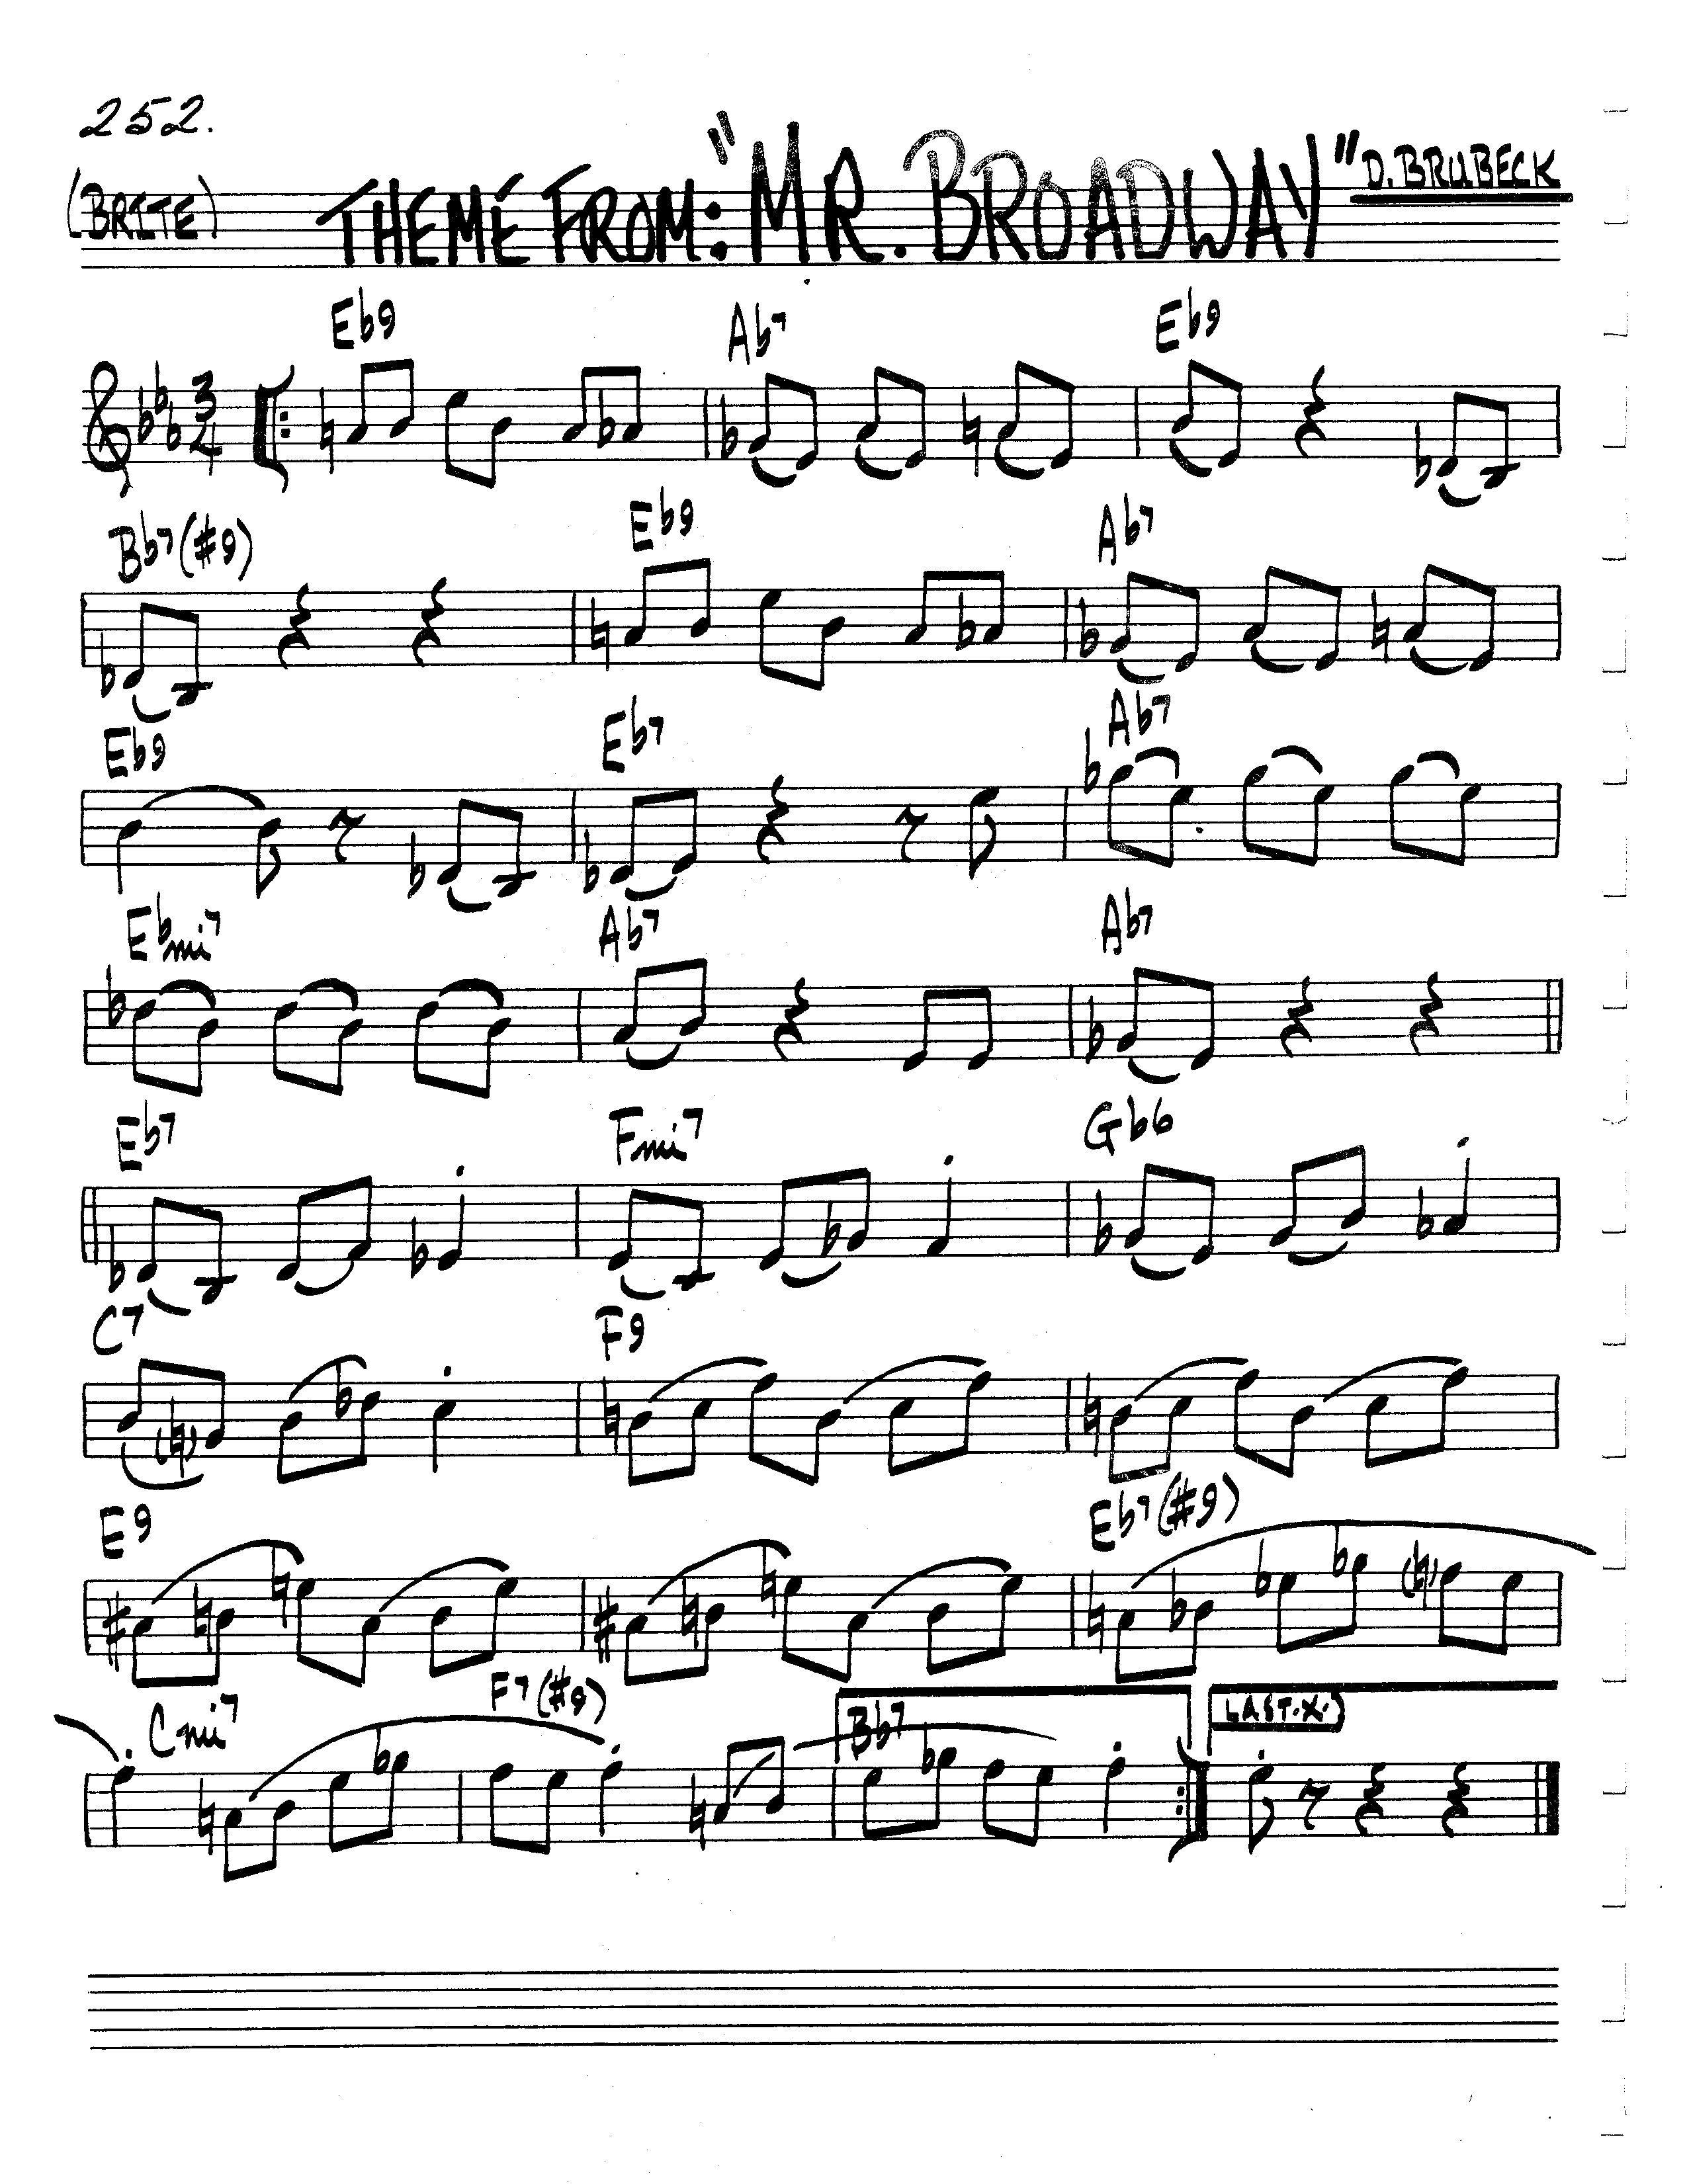 252.
(BRITE) THEME FROM: "MR. BROADWAY" D. BRUBECK
Eb9 Ab7 Eb9
3
4
Bb7(#9) Eb9 Ab7
Eb9 Eb7 Ab7
Ebmi7 Ab7 Ab7
Eb7 Fmi7 Gb6
C7 F9
E9 Eb7(#9)
Cmi7 F7(#9) Bb7 LAST X.